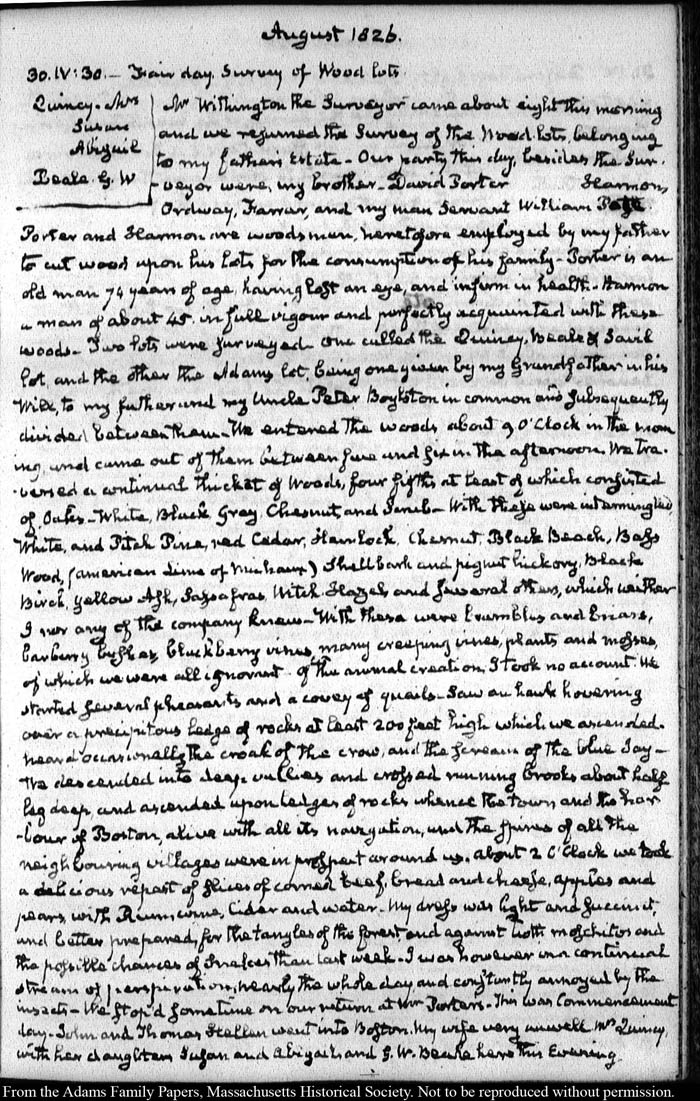 August 1826.
30. IV: 30. — Fair day. Survey of Wood lots.
Quincy. Mrs
Susan
Abigail
Beale. G. W
Mr Withington the Surveyor came about eight this morning
and we resumed the Survey of the Wood lots, belonging
to my father's Estate - Our party this day, besides the Sur-
-veyor were, my brother - David Porter Harmon,
Ordway, Farrar, and my man Servant William
Porter and Harmon are woodsmen, heretofore employed by my father
to cut wood upon his lots for the consumption of his family - Porter is an
old man 74 years of age, having lost an eye, and infirm in health - Harmon
a man of about 45. in full vigour and perfectly acquainted with these
woods - Two lots were surveyed one called the Quincy, Beale & Savil
lot, and the other the Adams lot, being one given by my Grandfather in his
Will, to my father and my Uncle Peter Boylston in common and subsequently
divided between them - We entered the woods about 9 O'Clock in the morn
ing, and came out of them between five and six in the afternoon. We tra-
-versed a continual thicket of Woods, four fifths at least of which consisted
of Oaks - White, Black, Gray, Chesnut, and Scrub - With these were intermingled
White, and Pitch Pine, red Cedar, Hemlock, Chesnut, Black Beach, Bass
Wood, (american Lime of Michaux) Shellbark and pignut hickory, Black
Birch, yellow Ash, Sassafras, Witch Hazels and several others, which neither
I nor any of the company knew - With these were Brambles and Briars,
barberry bushes, blackberry vines, many creeping vines, plants and mosses,
of which we were all ignorant - Of the animal creation, I took no account. We
started several pheasants and a covey of quails - Saw an hawk hovering
over a precipitous ledge of rocks at least 200 feet high which we ascended.
heard occasionally the croak of the crow, and the scream of the blue Jay -
We descended into deep vallies and crossed running brooks about half
leg deep, and ascended upon ledges of rocks whence the town and the har
-bour of Boston, alive with all its navigation, and the spires of all the
neighbouring villages were in prospect around us. About 2 O'Clock we took
a delicious repast of slices of corned beef, bread and cheese, apples and
pears, with Rum, wine, Cider and water - My dress was light and succinct,
and better prepared, for the tangles of the forest, and against both moschitos and
the possible chances of Snakes than last week - I was however in a continual
stream of perspiration, nearly the whole day and constantly annoyed by the
insects - We stop'd sometime on our return at Porter's - This was Commencement
day - John and Thomas Hellen went into Boston. My wife very unwell. Mrs Quincy,
with her daughters Susan and Abigail, and G. W. Beale here this Evening.
From the Adams Family Papers, Massachusetts Historical Society. Not to be reproduced without permission.